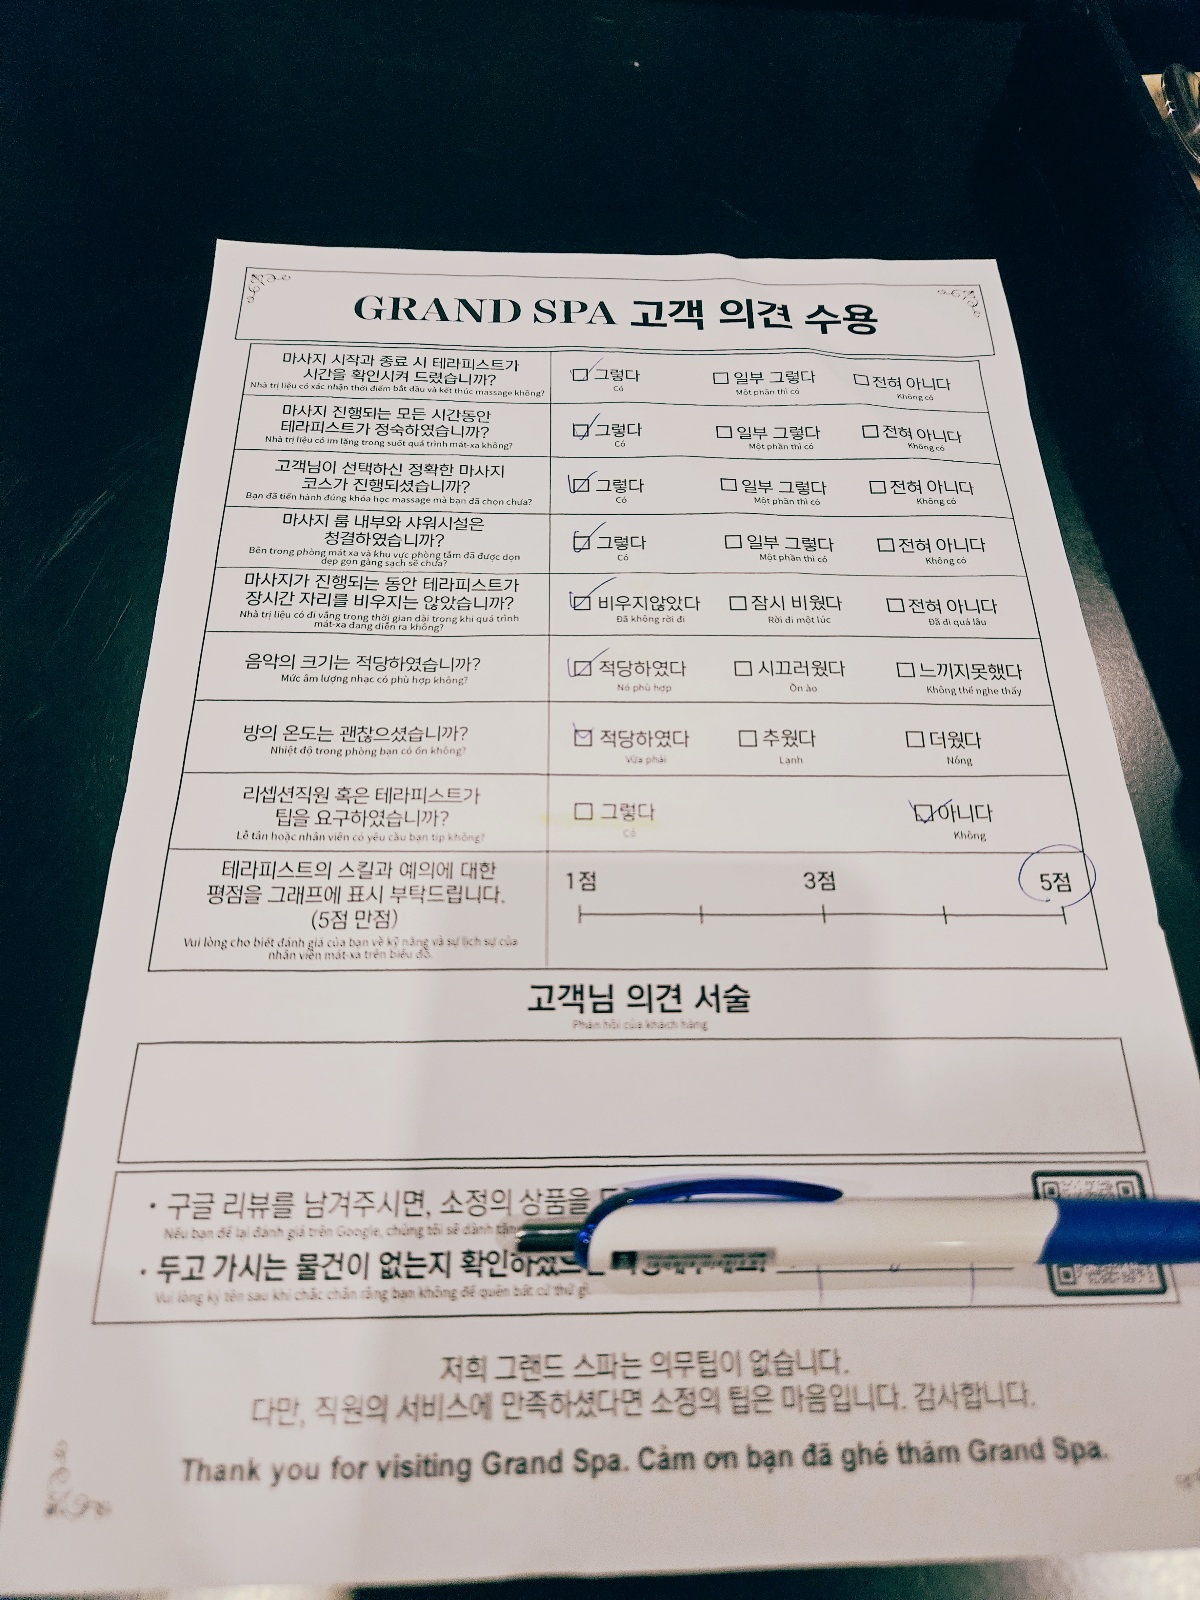 GRAND SPA 고객 의견 수용
마사지 시작과 종료 시 테라피스트가
시간을 확인시켜 드렸습니까?
Nhà trị liệu có xác nhận thời điểm bắt đầu và kết thúc massage không?
☐ 그렇다 ☐ 일부 그렇다 ☐ 전혀 아니다
Có Một phần thì có Không có
마사지 진행되는 모든 시간동안
테라피스트가 정숙하였습니까?
Nhà trị liệu có im lặng trong suốt quá trình mát-xa không?
☐ 그렇다 ☐ 일부 그렇다 ☐ 전혀 아니다
Có Một phần thì có Không có
고객님이 선택하신 정확한 마사지
코스가 진행되셨습니까?
Bạn đã tiến hành đúng khóa học massage mà bạn đã chọn chưa?
☐ 그렇다 ☐ 일부 그렇다 ☐ 전혀 아니다
Có Một phần thì có Không có
마사지 룸 내부와 샤워시설은
청결하였습니까?
Bên trong phòng mát xa và khu vực phòng tắm đã được dọn
dẹp gọn gàng sạch sẽ chưa?
☐ 그렇다 ☐ 일부 그렇다 ☐ 전혀 아니다
Có Một phần thì có Không có
마사지가 진행되는 동안 테라피스트가
장시간 자리를 비우지는 않았습니까?
Nhà trị liệu có đi vắng trong thời gian dài trong khi quá trình
mát-xa đang diễn ra không?
☐ 비우지않았다 ☐ 잠시 비웠다 ☐ 전혀 아니다
Đã không rời đi Rời đi một lúc Đã đi quá lâu
음악의 크기는 적당하였습니까?
Mức âm lượng nhạc có phù hợp không?
☐ 적당하였다 ☐ 시끄러웠다 ☐ 느끼지못했다
Nó phù hợp Ồn ào Không thể nghe thấy
방의 온도는 괜찮으셨습니까?
Nhiệt độ trong phòng bạn có ổn không?
☐ 적당하였다 ☐ 추웠다 ☐ 더웠다
Vừa phải Lạnh Nóng
리셉션직원 혹은 테라피스트가
팁을 요구하였습니까?
Lễ tân hoặc nhân viên có yêu cầu bạn tip không?
☐ 그렇다 ☐ 아니다
Có Không
테라피스트의 스킬과 예의에 대한
평점을 그래프에 표시 부탁드립니다.
(5점 만점)
Vui lòng cho biết đánh giá của bạn về kỹ năng và sự lịch sự của
nhân viên mát-xa trên biểu đồ.
1점 3점 5점
고객님 의견 서술
Phản hồi của khách hàng
· 구글 리뷰를 남겨주시면, 소정의 상품을
Nếu bạn để lại đánh giá trên Google, chúng tôi sẽ dành tặng
· 두고 가시는 물건이 없는지 확인하셨으면
Vui lòng ký tên sau khi chắc chắn rằng bạn không để quên bất cứ thứ gì.
저희 그랜드 스파는 의무팁이 없습니다.
다만, 직원의 서비스에 만족하셨다면 소정의 팁은 마음입니다. 감사합니다.
Thank you for visiting Grand Spa. Cảm ơn bạn đã ghé thăm Grand Spa.